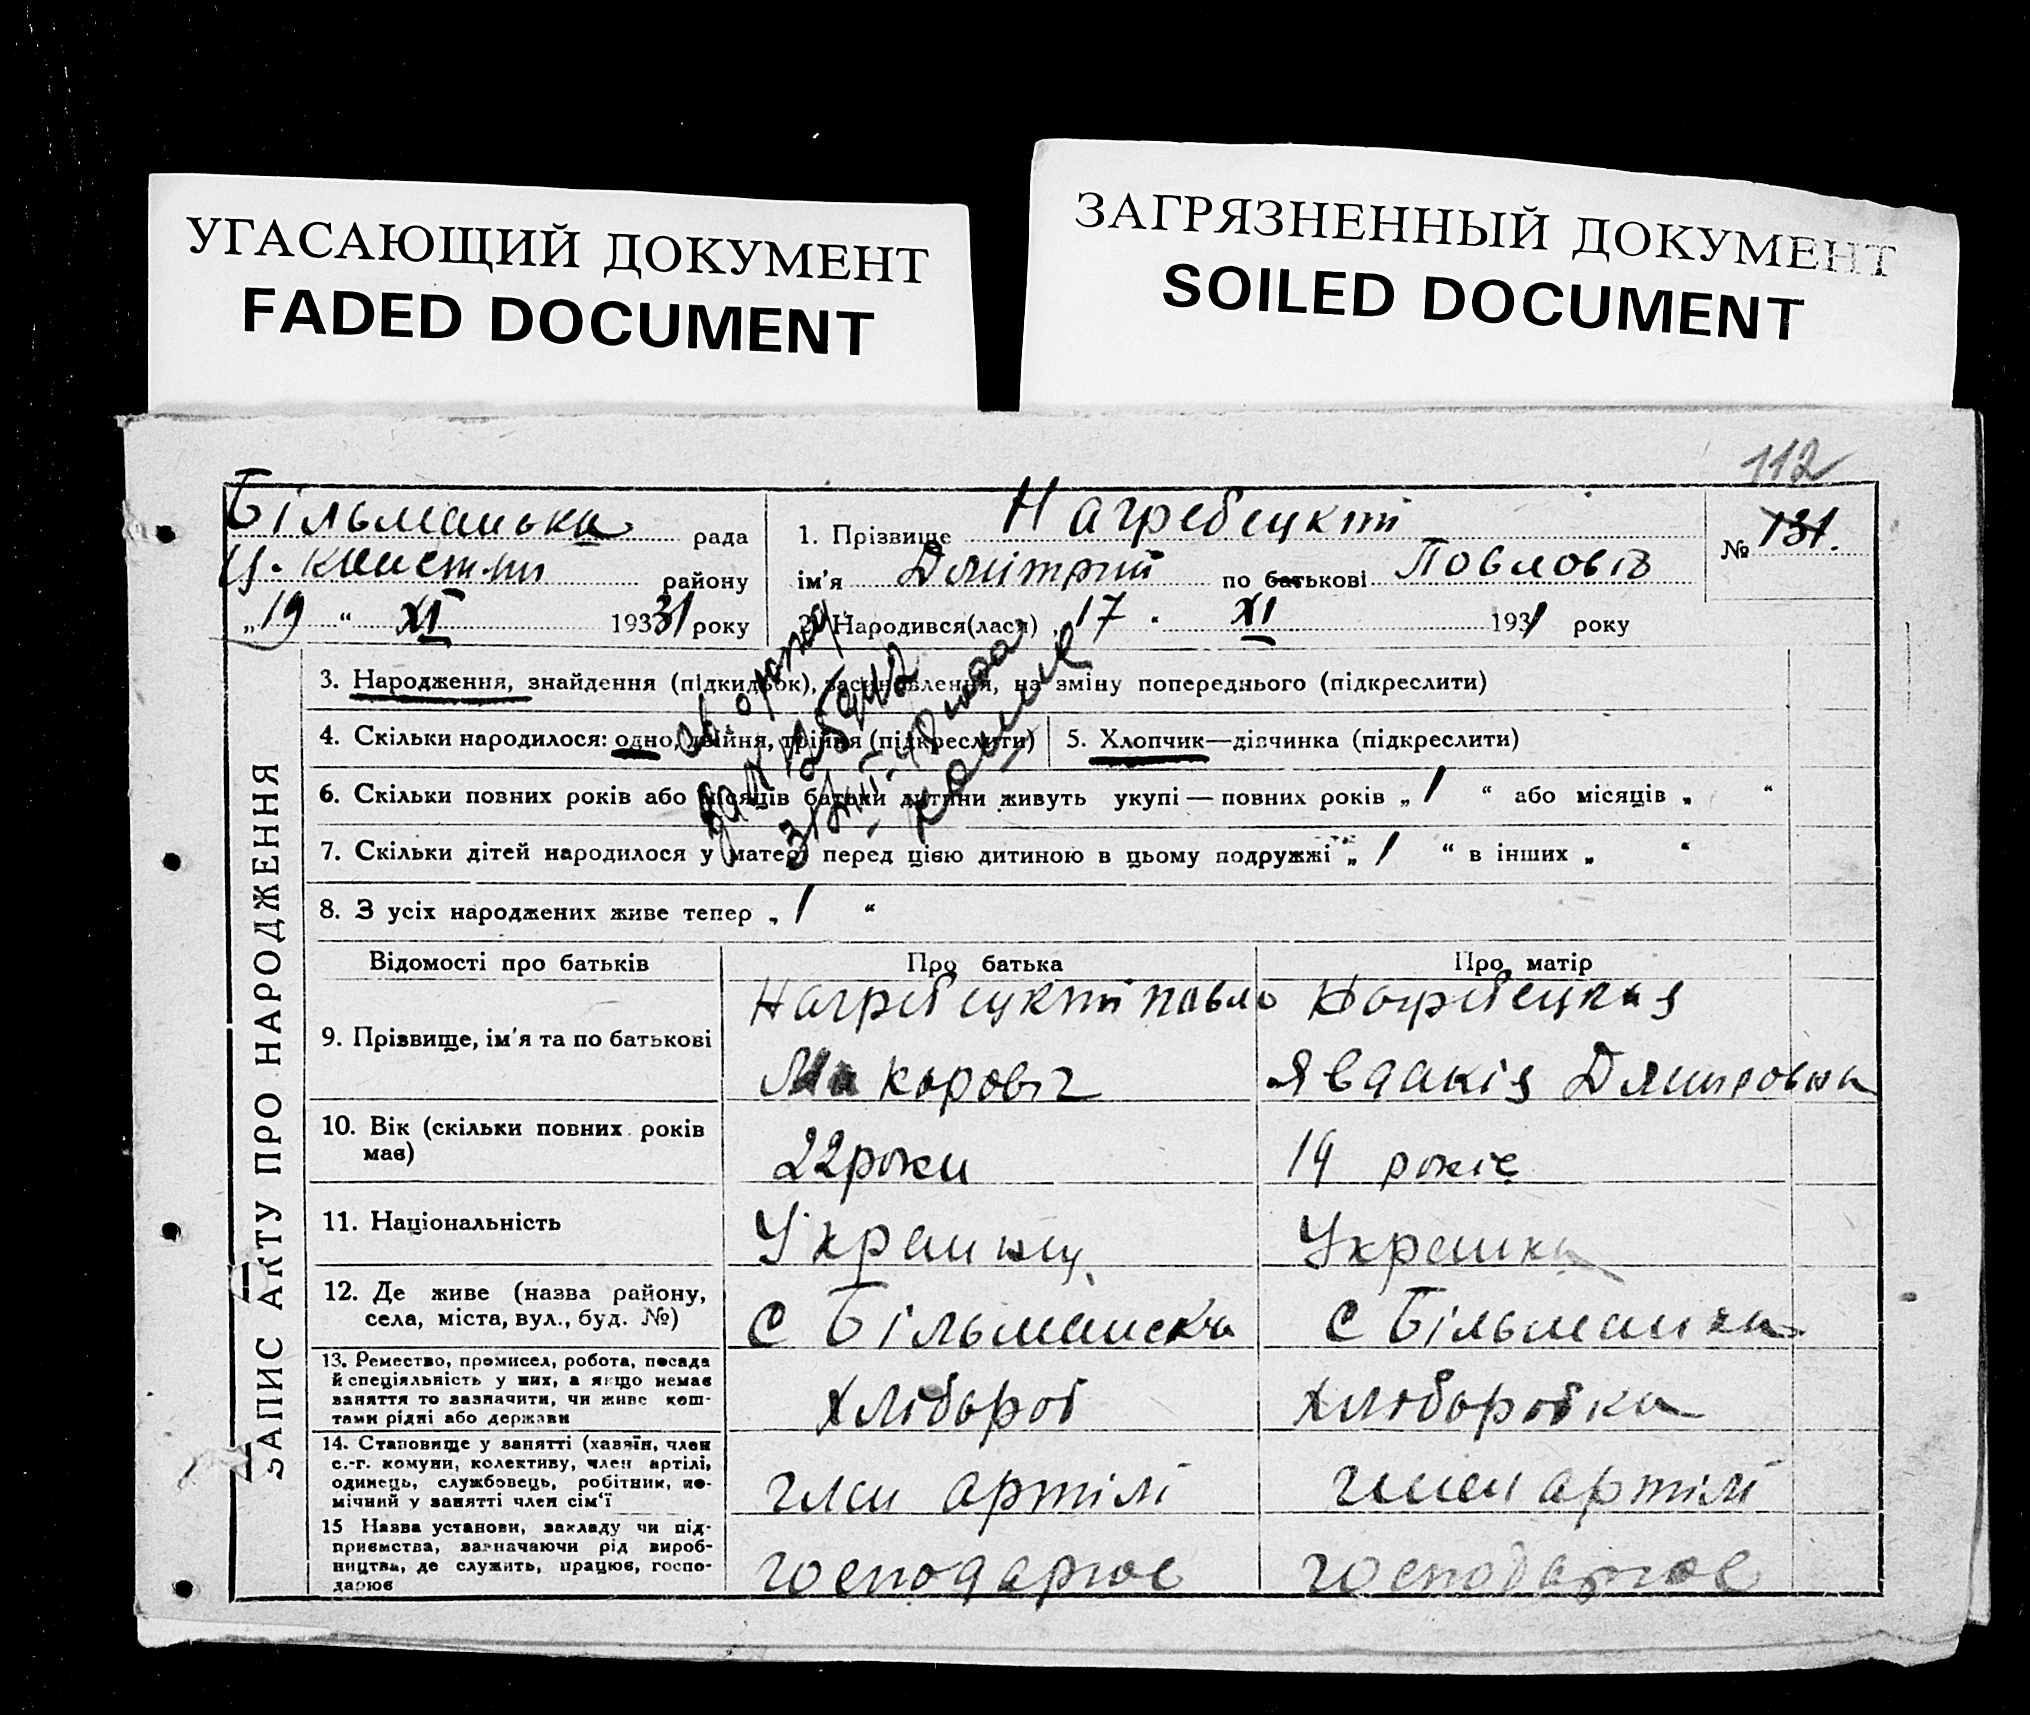 УГАСАЮЩИЙ ДОКУМЕНТ
FADED DOCUMENT
ЗАГРЯЗНЕННЫЙ ДОКУМЕНТ
SOILED DOCUMENT
112
Більманька рада
Ц. районy
„19“ XI 19331 року
1. Прізвище Нагребецкий
ім'я Дмітрий по батькові Повловіч
№ 131.
2. Народився(лася) 17. XI 1931 року
3. Народження, знайдення (підкидьок), засиновлення, на зміну попереднього (підкреслити)
4. Скільки народилося: одно, двійня, трійня (підкреслити)
5. Хлопчик—дівчинка (підкреслити)
6. Скільки повних років або місяців батьки дитини живуть укупі — повних років „ 1 “ або місяців „ “
7. Скільки дітей народилося у матері перед цією дитиною в цьому подружжі „ 1 “ в інших „ “
8. З усіх народжених живе тепер „ 1 “
ЗАПИС АКТУ ПРО НАРОДЖЕННЯ
Відомості про батьків
Про батька
Про матір
9. Прізвище, ім'я та по батькові
Нагребецкий Павло
Макоровіч
Нагребецкая
Явдакія Дмитровна
10. Вік (скільки повних років
має)
22 роки
19 років
11. Національність
Украинец
Украинка
12. Де живе (назва району,
села, міста, вул., буд. №)
с Більманска
с Більманка
13. Ремество, промисел, робота, посада
й спеціяльність у них, а якщо немає
заняття то зазначити, чи живе кош-
тами рідні або держави
Хлібороб
Хлібороб­ка
14. Становище у занятті (хазяїн, член
с.-г. комуни, колективу, член артілі,
одинець, службовець, робітник, по-
мічний у занятті член сім'ї
член артілі
член артілі
15 Назва установи, закладу чи під-
приємства, зазначаючи рід вироб-
ництва, де служить, працює, госпо-
дарює
господарює
господарює